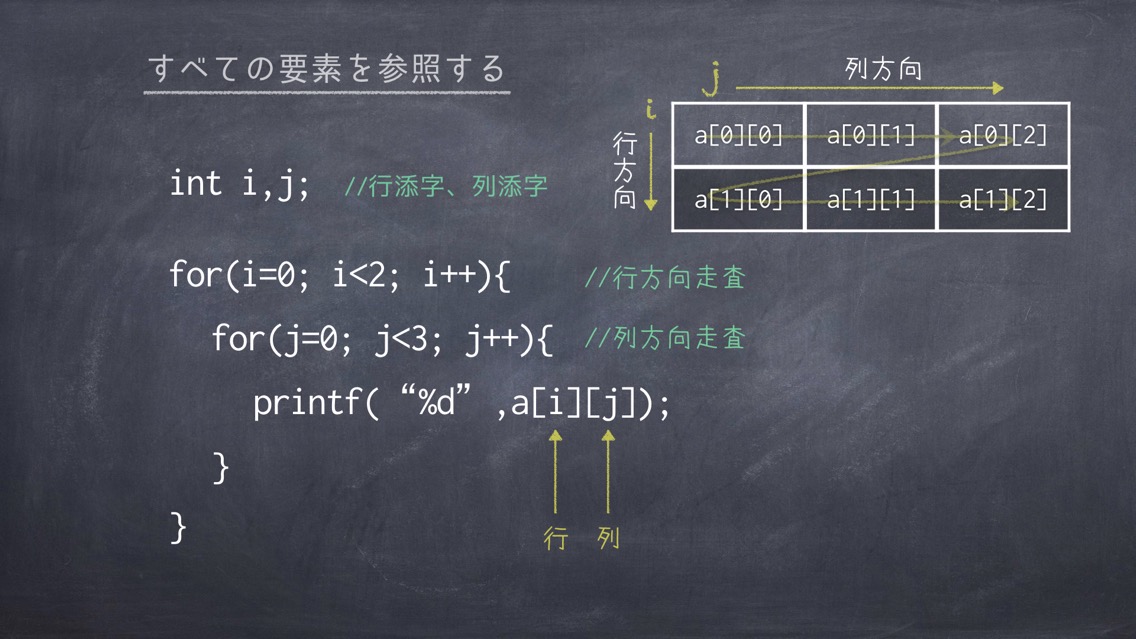 すべての要素を参照する
j 列方向
i
行方向
a[0][0] a[0][1] a[0][2]
a[1][0] a[1][1] a[1][2]
int i,j; //行添字、列添字
for(i=0; i<2; i++){ //行方向走査
for(j=0; j<3; j++){ //列方向走査
printf( “%d” ,a[i][j]);
}
}
行 列